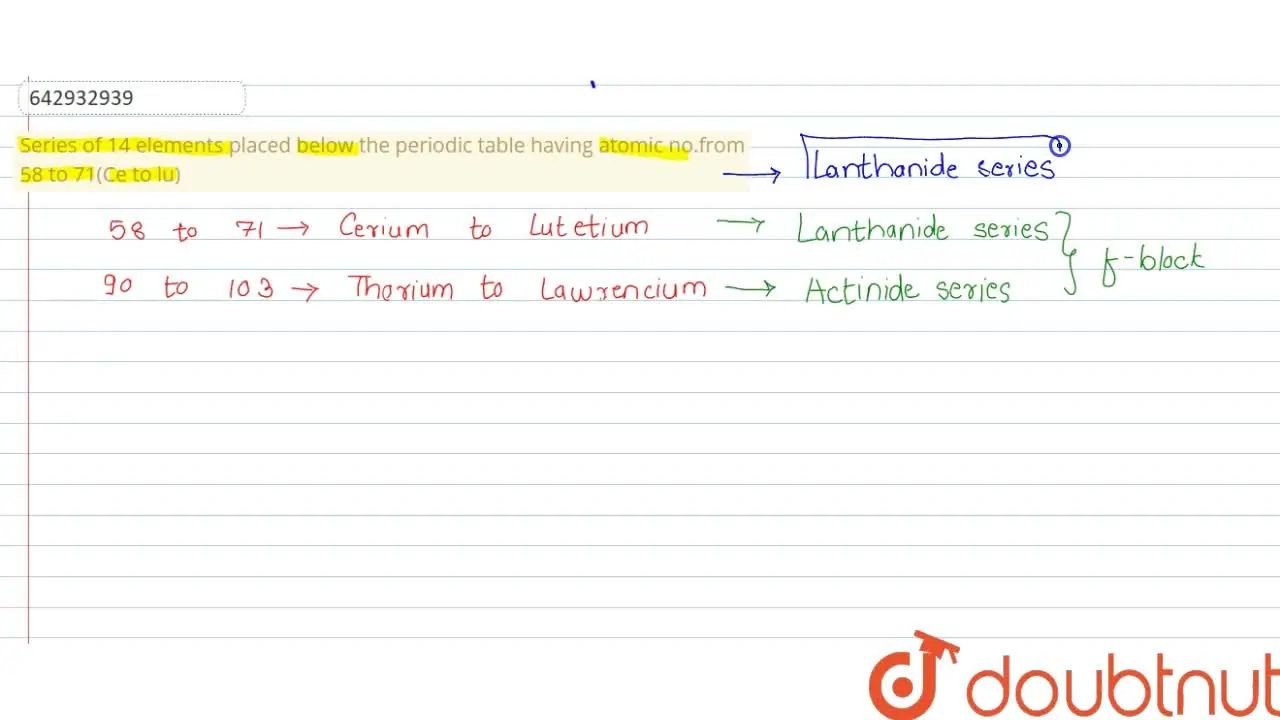 642932939
Series of 14 elements placed below the periodic table having atomic no.from
58 to 71(Ce to lu)
→ Lanthanide series
58 to 71 → Cerium to Lutetium → Lanthanide series
f-block
90 to 103 → Thorium to Lawrencium → Actinide series
doubtnut